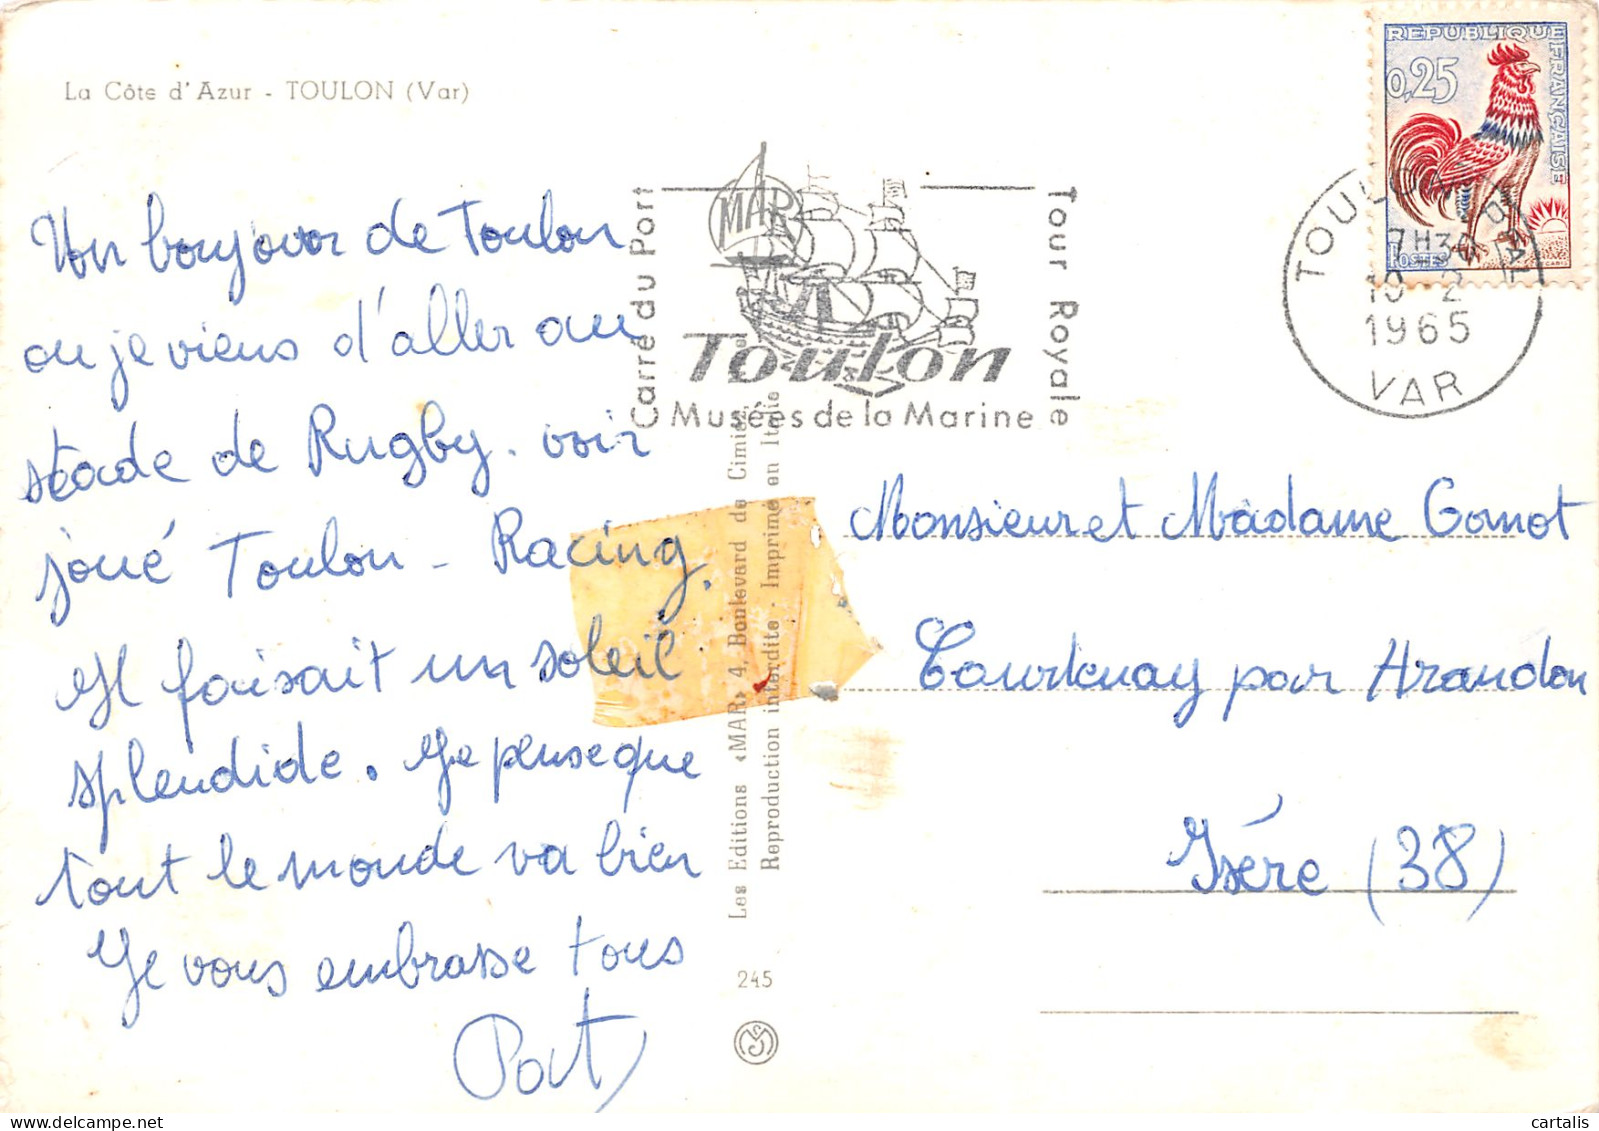 La Côte d'Azur - TOULON (Var)
REPUBLIQUE
FRANÇAISE
0,25
POSTES
MAR
Carré du Port
Tour Royale
Toulon
Musées de la Marine
TOULON
7H30
10 - 2
1965
VAR
Un bonjour de Toulon
ou je viens d'aller au
stade de Rugby. voir
joué Toulon - Racing.
Il faisait un soleil
splendide. Je pense que
tout le monde va bien
Je vous embrasse tous
Les Editions «MAR» 4, Boulevard de
Reproduction interdite - Imprimé en Italie
245
Monsieur et Madame Gomot
Courtenay par Arandon
Isère (38)
cartalis
delcampe.net